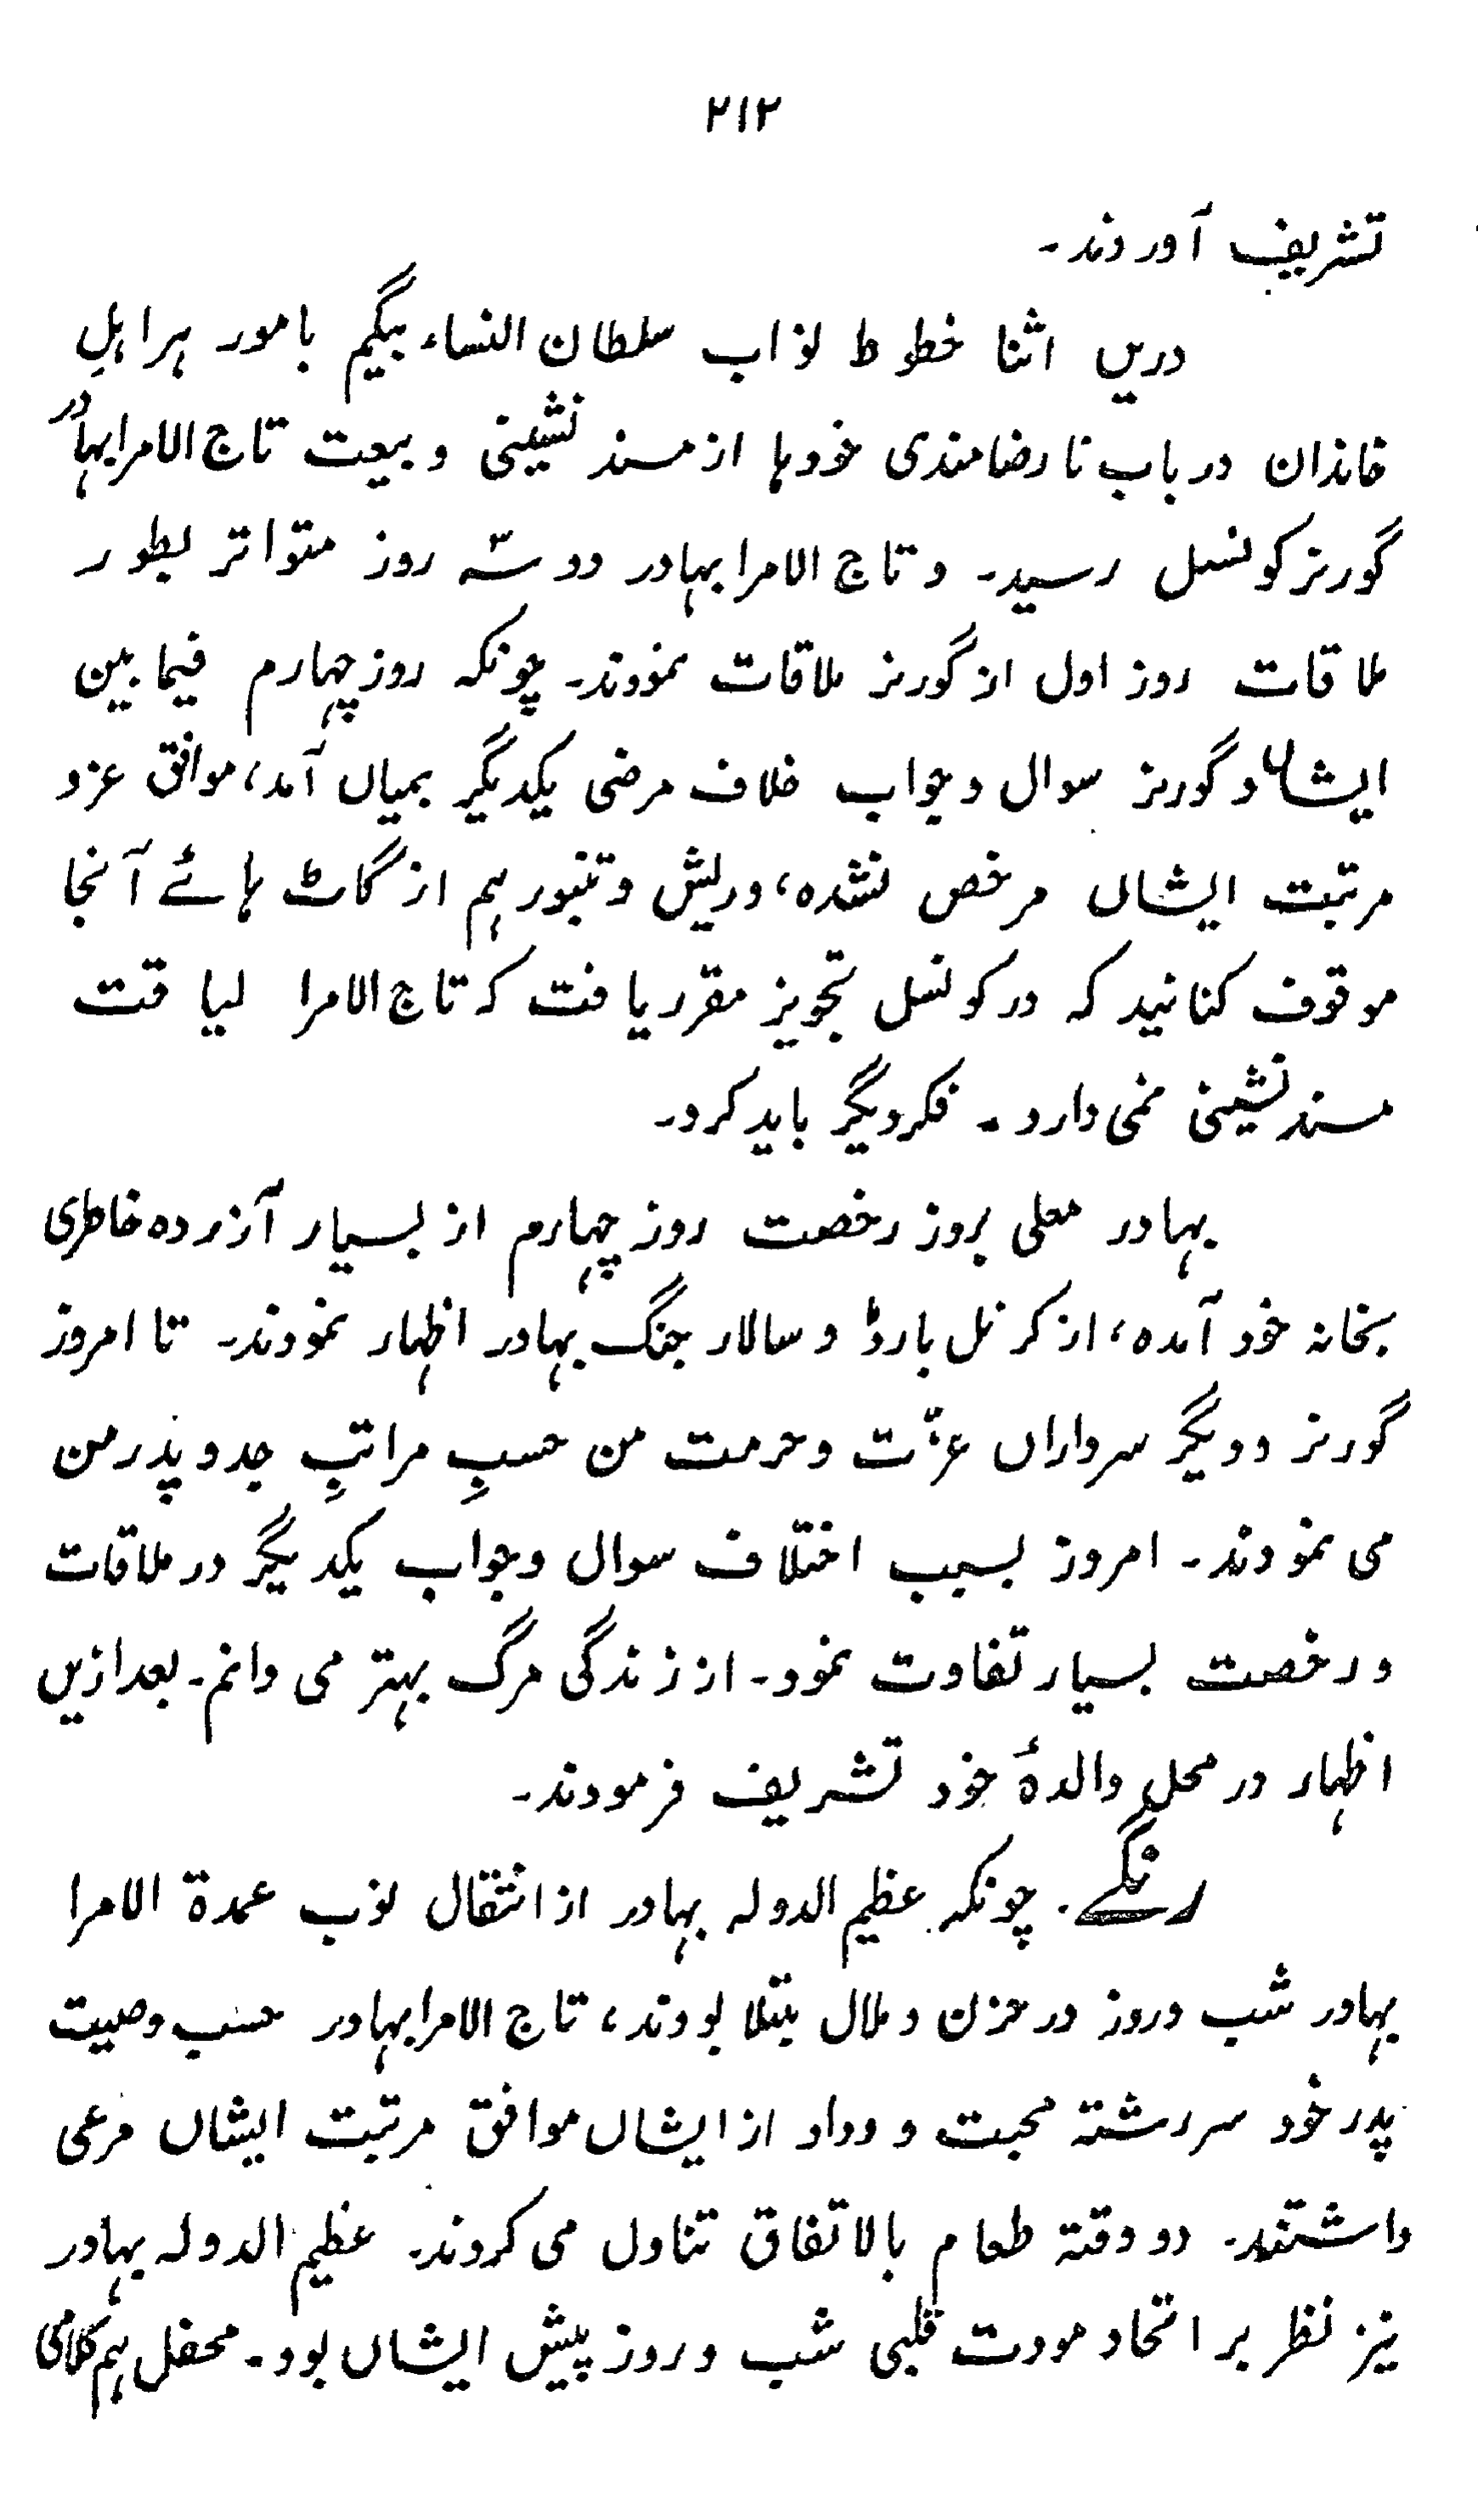 ۲۱۲
تشریف آوردند۔
دریں اثنا خطوط نواب سلطان النساء بیگم بامور ہر اہلِ
خاندان در باب نارضامندی خودہا از مسند نشینی و بیعت تاج الامرا بہادر
گورنر کونسل رسید۔ و تاج الامرا بہادر دو سّہ روز متواتر بطور
ملاقات روز اول از گورنر ملاقات نمودند۔ چونکہ روز چہارم فیمابین
ایشاں و گورنر سوال و جواب خلاف مرضی یکدیگر بمیاں آمد، موافق عز و
مرتبت ایشاں مرخص نشدہ، و ریش و تنبور ہم از گاٹ ہائے آنجا
موقوف کنانید کہ در کونسل تجویز مقرر یافت کہ تاج الامرا لیاقت
مسند نشینی نمی دارد۔ فکر دیگر باید کرد۔
بہادر معلی بروز رخصت روز چہارم از بسیار آزردہ خاطری
بخانہ خود آمدہ، از کرنل بارڈ و سالار جنگ بہادر اظہار نمودند۔ تا امروز
گورنر و دیگر سرداراں عزّت و حرمت من حسبِ مراتبِ جد و پدر من
می نمودند۔ امروز بسبب اختلاف سوال و جواب یکدیگر در ملاقات
و رخصت بسیار تفاوت نمود۔ از زندگی مرگ بہتر می دانم۔ بعد ازیں
اظہار در محل والدۂ خود تشریف فرمودند۔
رنگے۔ چونکہ عظیم الدولہ بہادر از انتقال نوب عمدۃ الامرا
بہادر شب و روز در حزن و ملال مبتلا بودند، تاج الامرا بہادر حسب وصیت
پدر خود سررشتۃ محبت و وداد از ایشاں موافق مرتبت ایشاں مرعی
داشتند۔ دو وقتہ طعام بالاتفاق تناول می کردند۔ عظیم الدولہ بہادر
نیز نظر بر اتحاد مودت قلبی شب و روز پیش ایشاں بود۔ محفل ہم کلامی